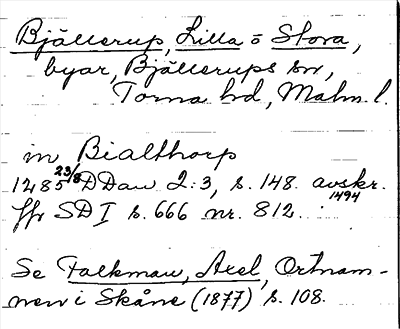 Bjällerup, Lilla o Stora,
byar, Bjällerups sn,
Torna hd, Malm. l.
in Bialthorp
1285 23/8 DDan 2:3, s. 148. avskr. 1494
ffr SD I s. 666 nr. 812.
Se Falkman, Axel, Ortnam-
nen i Skåne (1877) s. 108.